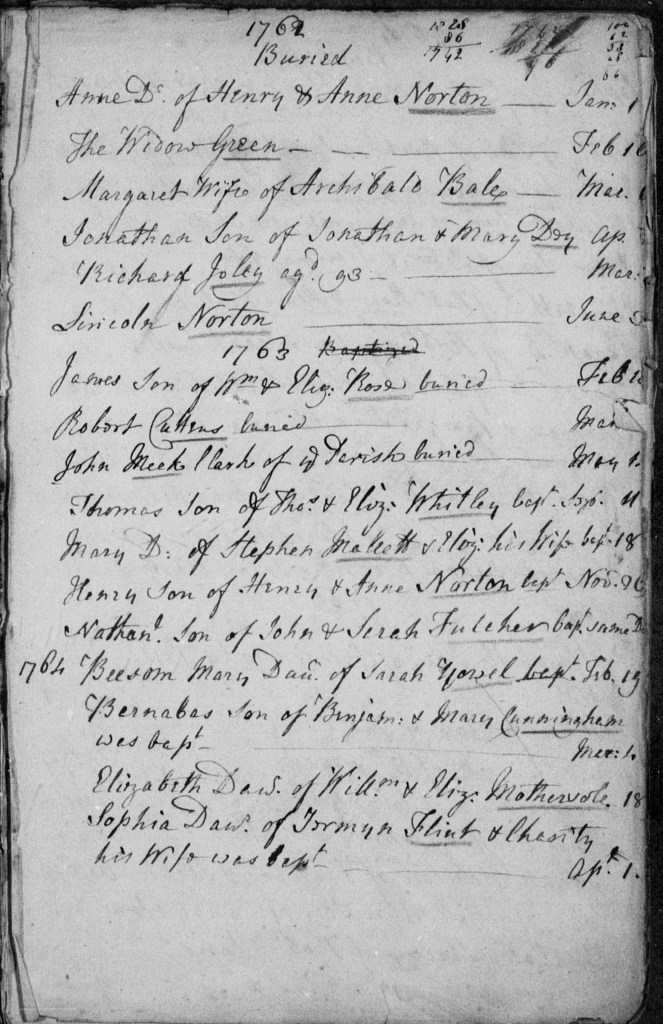 1762
1828
86
1742
Buried
Anne Dr. of Henry & Anne Norton — Jan: 1
The Widow Green — Feb 16
Margaret Wife of Archibald Bale — Mar.
Jonathan Son of Jonathan & Mary Dey Ap.
Richard Joley agd. 93 — Mar:
Lincoln Norton — June 5
1763 Baptized
James Son of Wm & Eliz: Rose buried — Feb
Robert Cuttens buried — Mar
John Meek Clark of ye Parish buried — May 1
Thomas Son of Thos & Eliz: Whitley bapt. Sep. 11
Mary D: of Stephen Mallett & Eliz: his Wife bapt. 18
Henry Son of Henry & Anne Norton bapt Nov. 26
Nathanl. Son of John & Serah Fulcher bapt. same D
1764 Beesom Mary Daur. of Sarah Yowel bapt. Feb. 19
Barnabas Son of Benjam: & Mary Cunningham
was bapt — Mar: 1
Elizabeth Daur. of Willm & Eliz: Mothersole 18
Sophia Daur. of Jermyn Flint & Charity
his Wife was bapt — Apl. 1.